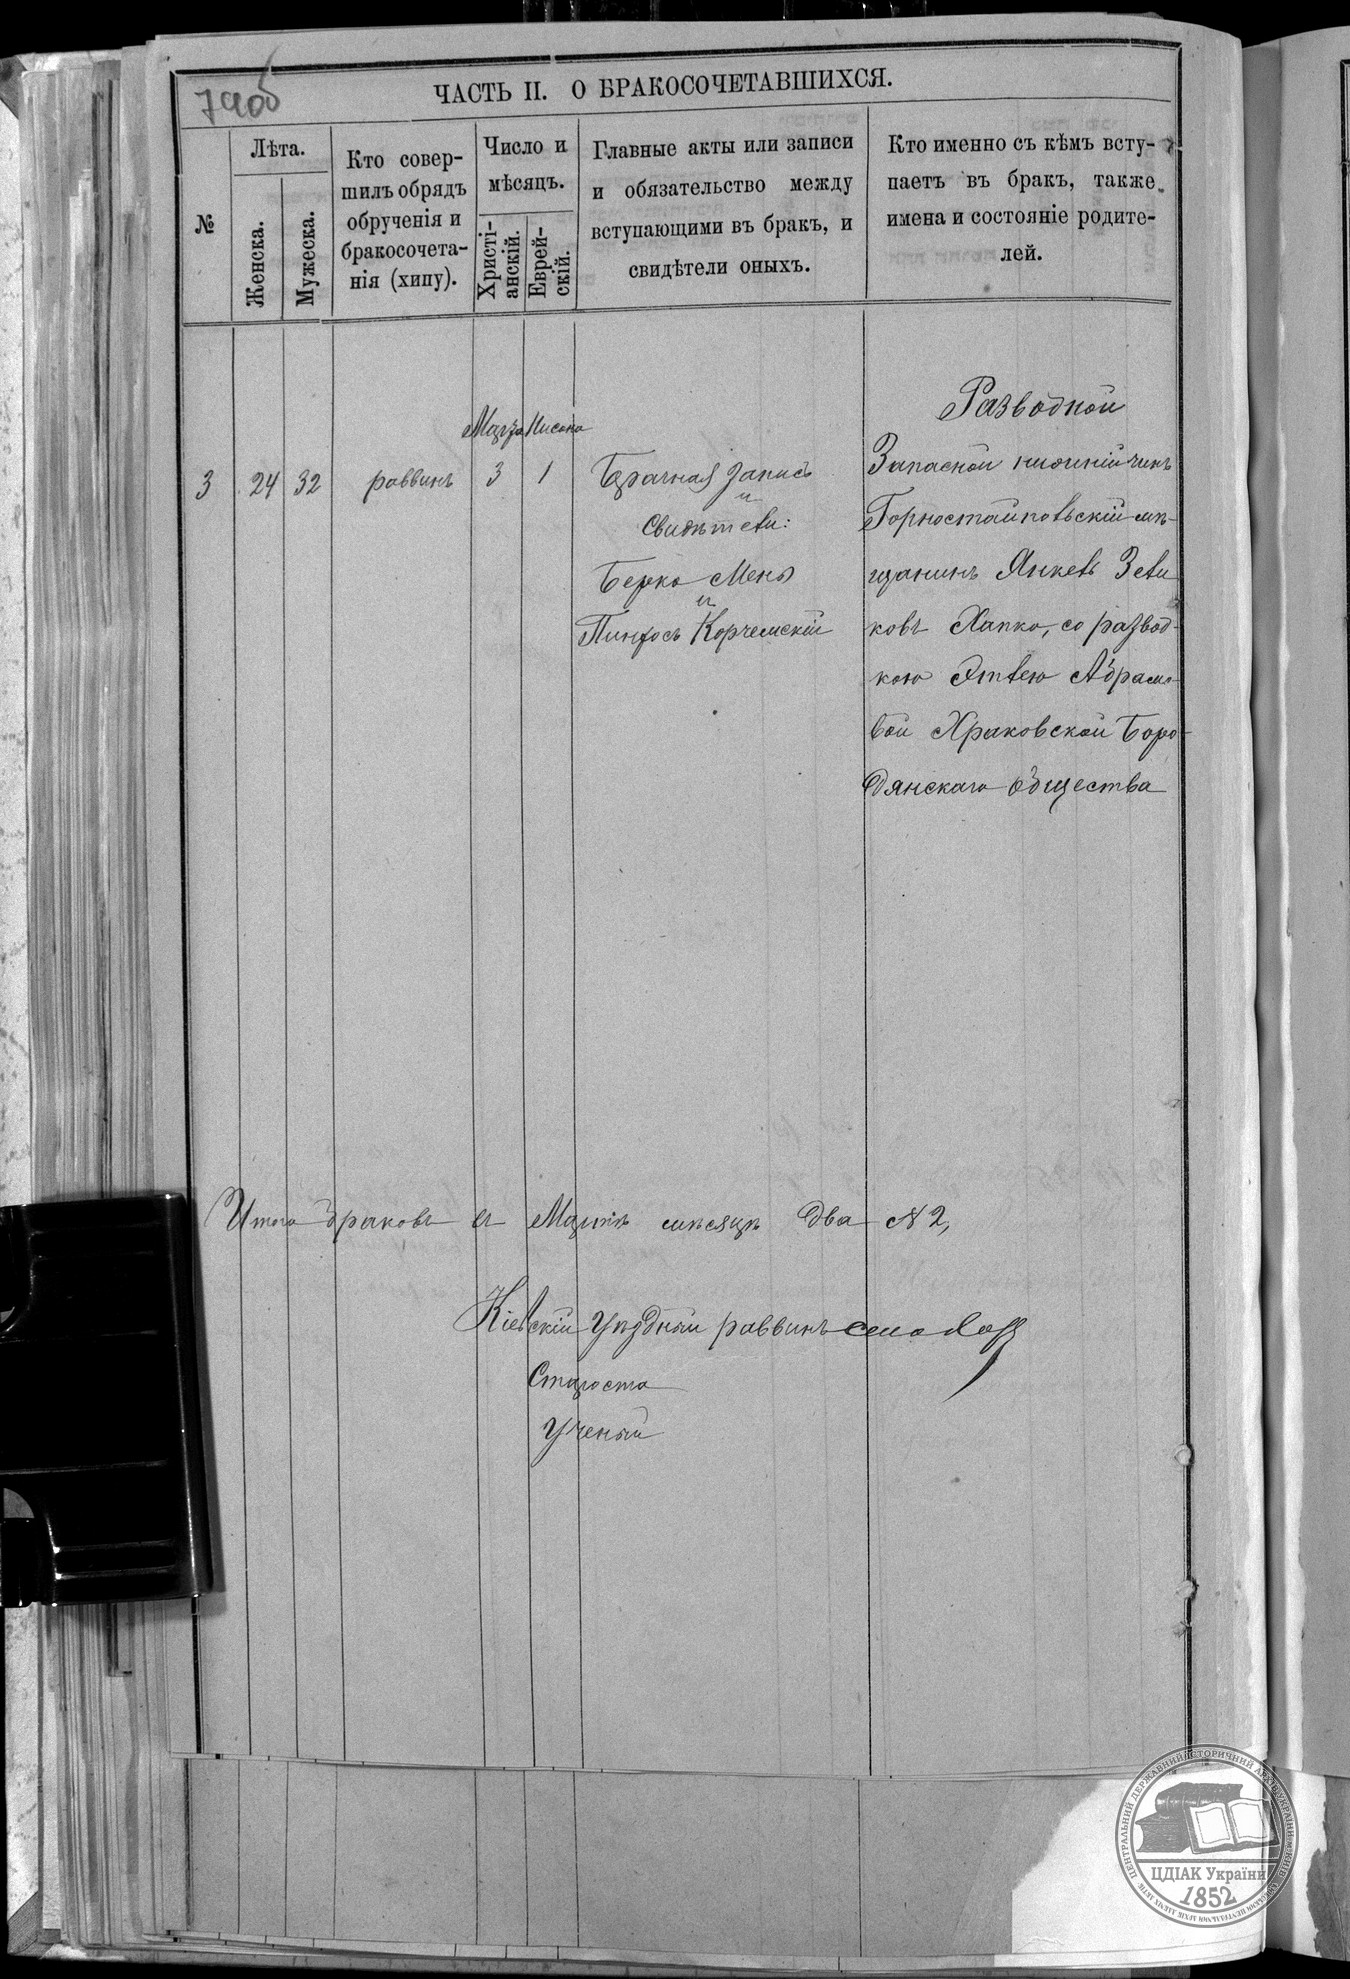 790б
ЧАСТЬ II. О БРАКОСОЧЕТАВШИХСЯ.
№
Лѣта.
Женска.
Мужеска.
Кто совер-
шилъ обрядъ
обрученія и
бракосочета-
нія (хипу).
Число и
мѣсяцъ.
Христі-
анскій.
Еврей-
скій.
Главные акты или записи
и обязательство между
вступающими въ бракъ, и
свидѣтели оныхъ.
Кто именно съ кѣмъ всту-
паетъ въ бракъ, также
имена и состояніе родите-
лей.
3
24
32
раввинъ
Марта
3
Нисона
1
Брачная запись
и
Свидѣтели:
Берко Мень
и
Пинхосъ Корчемскій
Разводной
Запасной нижній чинъ
Горностайпольскій мѣ-
щанинъ Янкель Зели
ковъ Хапко, со развод-
кою Этлею Абрамо-
вой Храковской Боро-
дянскаго общества
Итого браковъ в Мартѣ мѣсяцѣ два № 2,
Кіевскій Уѣздный раввинъ
Староста
Ученый
ЦЕНТРАЛЬНИЙ ДЕРЖАВНИЙ ІСТОРИЧНИЙ АРХІВ УКРАЇНИ, М.КИЇВ
ЦДІАК України
1852